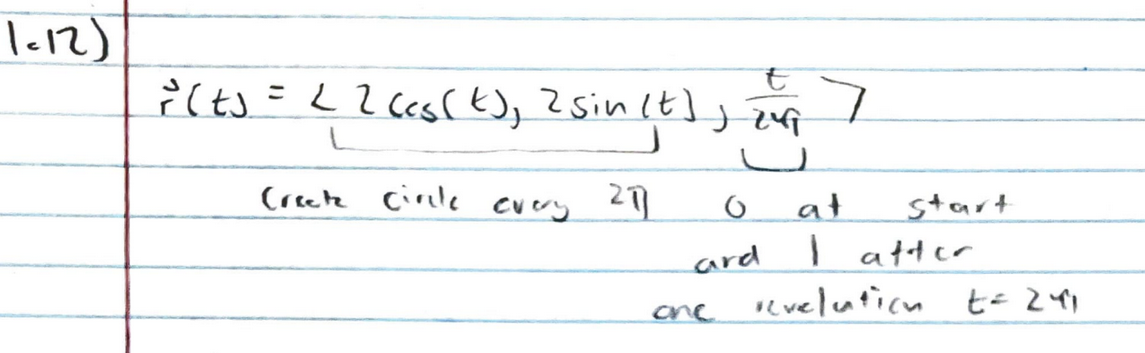 1.12)
r⃗(t) = < 2cos(t), 2sin(t), t/2π >
create circle every 2π 0 at start
and 1 after
one revolution t = 2π